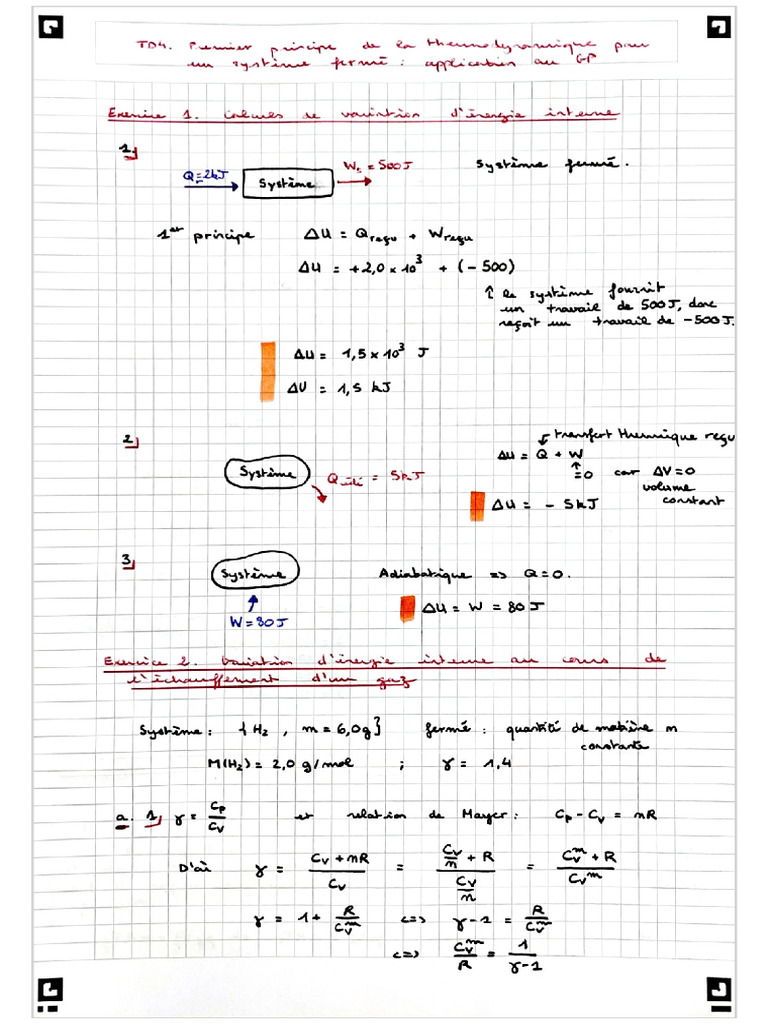 TD4. Premier principe de la thermodynamique pour
un système fermé : application au GP
Exercice 1. Calcules de variation d'énergie interne
1.
Q = 2kJ
Système
Ws = 500J
Système fermé.
1er principe ΔU = Qreçu + Wreçu
ΔU = +2,0 × 10³ + (-500)
↑ le système fournit
un travail de 500J, donc
reçoit un travail de -500J.
ΔU = 1,5 × 10³ J
ΔU = 1,5 kJ
2
Système
Qcédé = 5kJ
transfert thermique reçu
ΔU = Q + W
=0 car ΔV=0
volume
constant
ΔU = - 5kJ
3
Système
W = 80J
Adiabatique => Q=0.
ΔU = W = 80 J
Exercice 2. Variation d'énergie interne au cours de
l'échauffement d'un gaz
Système : { H2 , m = 6,0g } fermé : quantité de matière n
constante
M(H2) = 2,0 g/mol ; γ = 1,4
a. 1 γ = Cp/Cv et relation de Mayer : Cp - Cv = nR
D'où γ = (Cv + nR)/Cv = (Cv/n + R)/(Cv/n) = (Cvm + R)/Cvm
γ = 1 + R/Cvm <=> γ-1 = R/Cvm
<=> Cvm/R = 1/(γ-1)